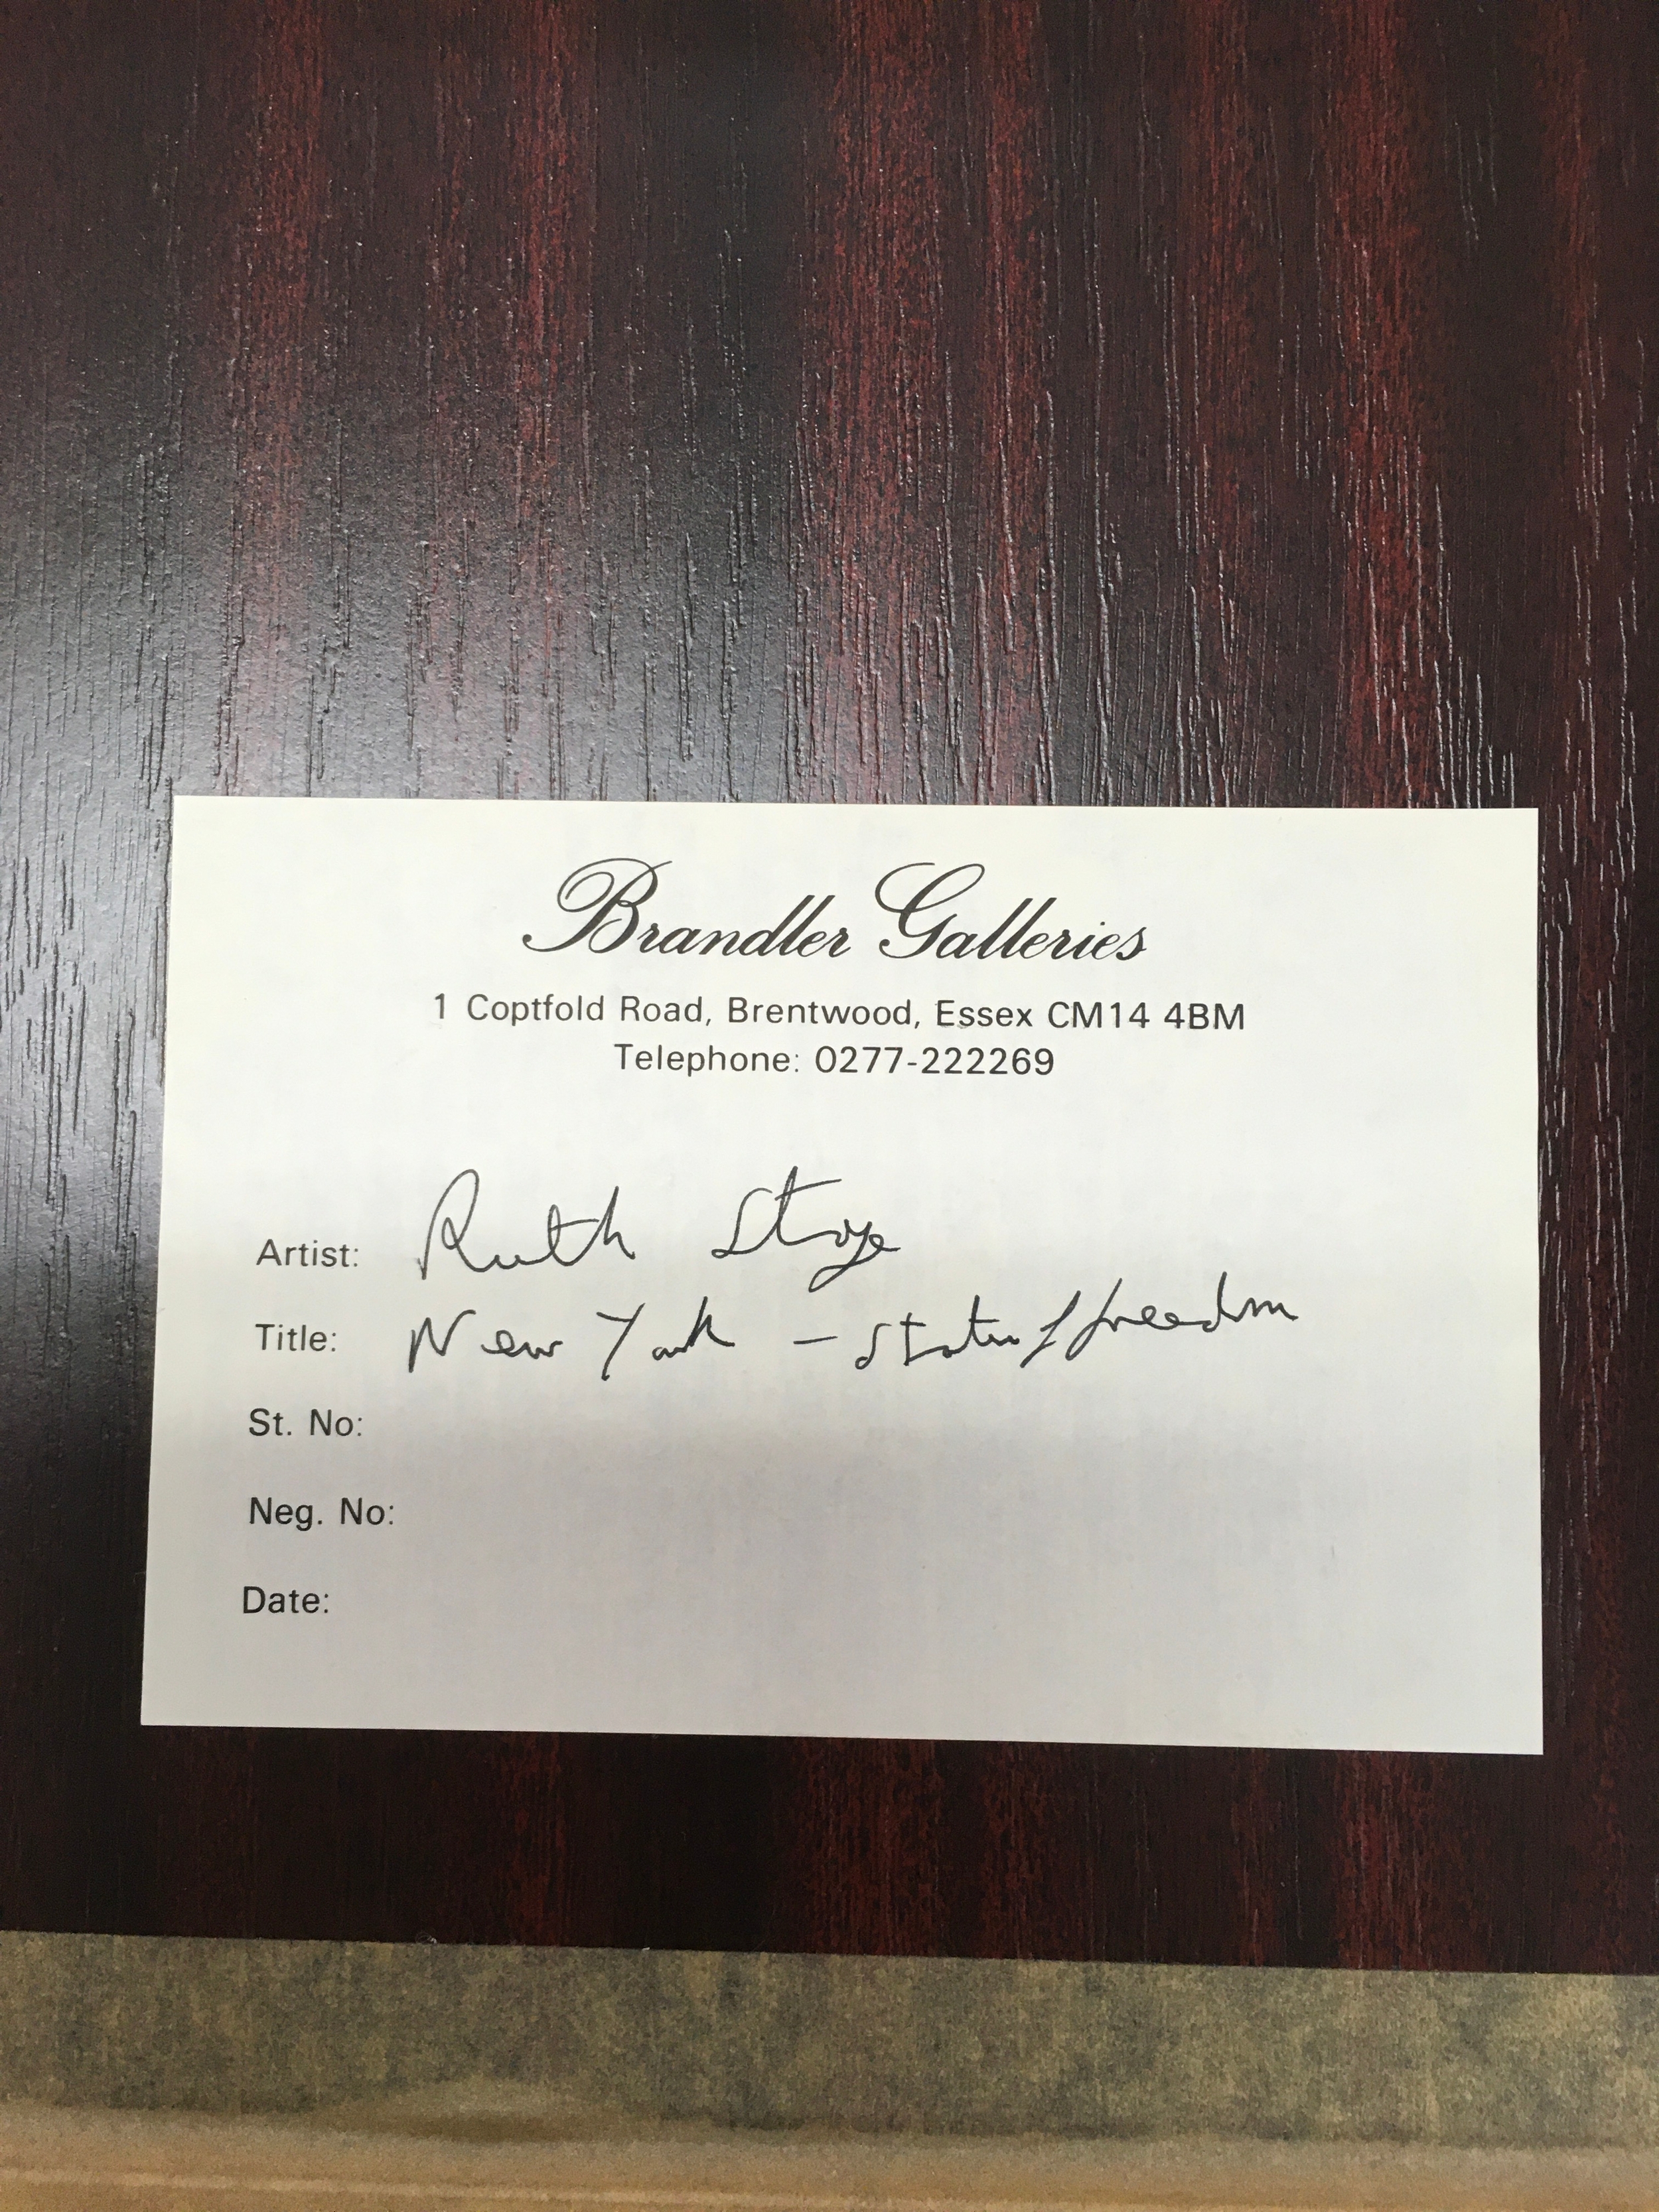 Brandler Galleries
1 Coptfold Road, Brentwood, Essex CM14 4BM
Telephone: 0277-222269
Artist: Ruth Stage
Title: New York - Statue of freedom
St. No:
Neg. No:
Date: